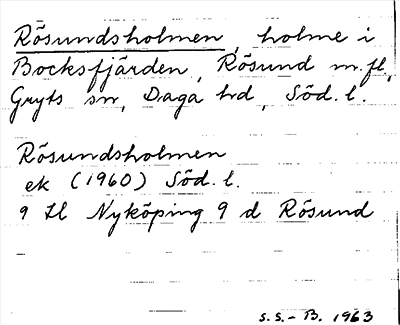 Rösundsholmen, holme i
Bocksfjärden, Rösund m.fl.,
Gryts sn, Daga hd, Söd. l.
Rösundsholmen
ek (1960) Söd. l.
9 Nyköping 9 d Rösund
S.S.-B. 1963